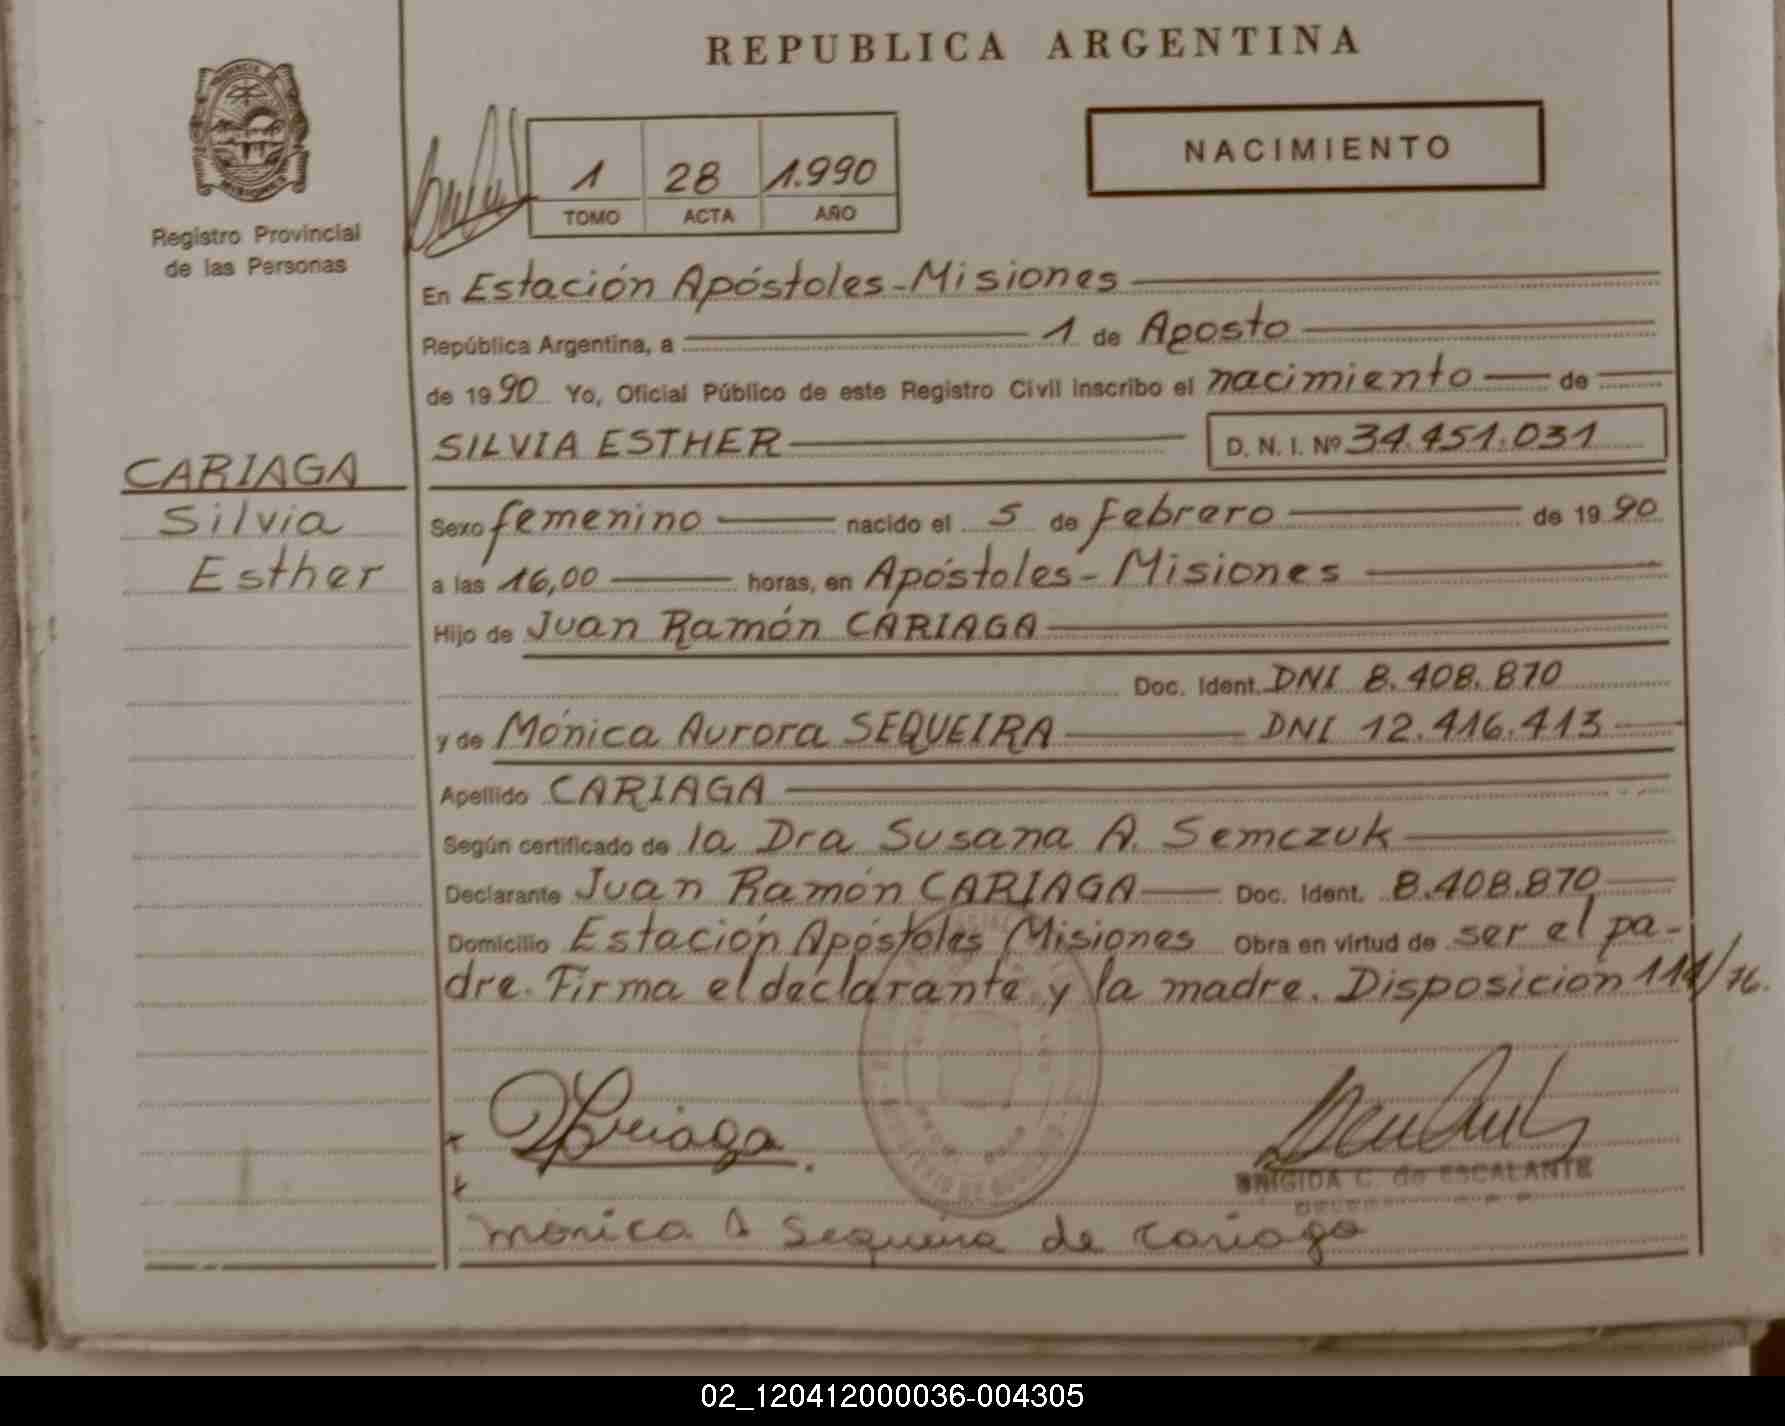 REPUBLICA ARGENTINA
PROVINCIA
MISIONES
Registro Provincial
de las Personas
1 28 1.990
TOMO ACTA AÑO
NACIMIENTO
En Estación Apóstoles-Misiones
República Argentina, a 1 de Agosto
de 1990 Yo, Oficial Público de este Registro Civil inscribo el nacimiento de
SILVIA ESTHER D. N. I. Nº 34.451.031
CARIAGA
Silvia
Esther
Sexo femenino nacido el 5 de febrero de 1990
a las 16,00 horas, en Apóstoles-Misiones
Hijo de Juan Ramón CARIAGA
Doc. Ident. DNI 8.408.870
y de Mónica Aurora SEQUEIRA DNI 12.416.413
Apellido CARIAGA
Según certificado de la Dra Susana A. Semczuk
Declarante Juan Ramón CARIAGA Doc. Ident. 8.408.870
Domicilio Estación Apóstoles Misiones Obra en virtud de ser el pa-
dre. Firma el declarante y la madre. Disposición /76.
Cariaga
BRIGIDA C. de ESCALANTE
Monica A Sequeira de Cariaga
02_120412000036-004305